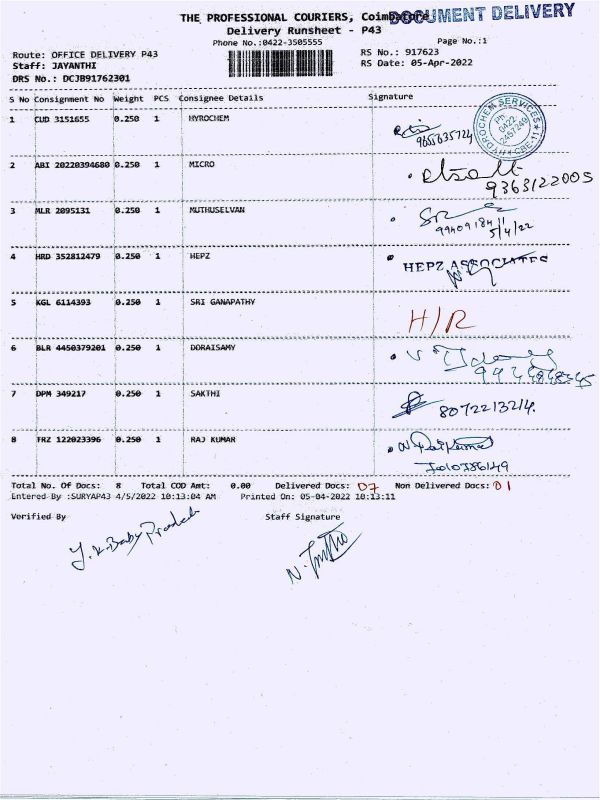 THE PROFESSIONAL COURIERS, Coimbatore
DOCUMENT DELIVERY
Delivery Runsheet - P43
Phone No.:0422-3505555
Page No.:1
Route: OFFICE DELIVERY P43
RS No.: 917623
Staff: JAYANTHI
RS Date: 05-Apr-2022
DRS No.: DCJB91762301
S No Consignment No Weight PCS Consignee Details Signature
1 CUD 3151655 0.250 1 HYROCHEM
9655635724
HYDROCHEM SERVICES
Ph
0422
2457249
CBE-11
2 ABI 20220394680 0.250 1 MICRO
9363122005
3 MLR 2095131 0.250 1 MUTHUSELVAN
5/4/22
4 HRD 352812479 0.250 1 HEPZ
HEPZ ASSOCIATES
5 KGL 6114393 0.250 1 SRI GANAPATHY
H/R
6 BLR 4450379201 0.250 1 DORAISAMY
7 DPM 349217 0.250 1 SAKTHI
8072213214.
8 TRZ 122023396 0.250 1 RAJ KUMAR
Total No. Of Docs: 8 Total COD Amt: 0.00 Delivered Docs: 07 Non Delivered Docs: 01
Entered By :SURYAP43 4/5/2022 10:13:04 AM Printed On: 05-04-2022 10:13:11
Verified By Staff Signature